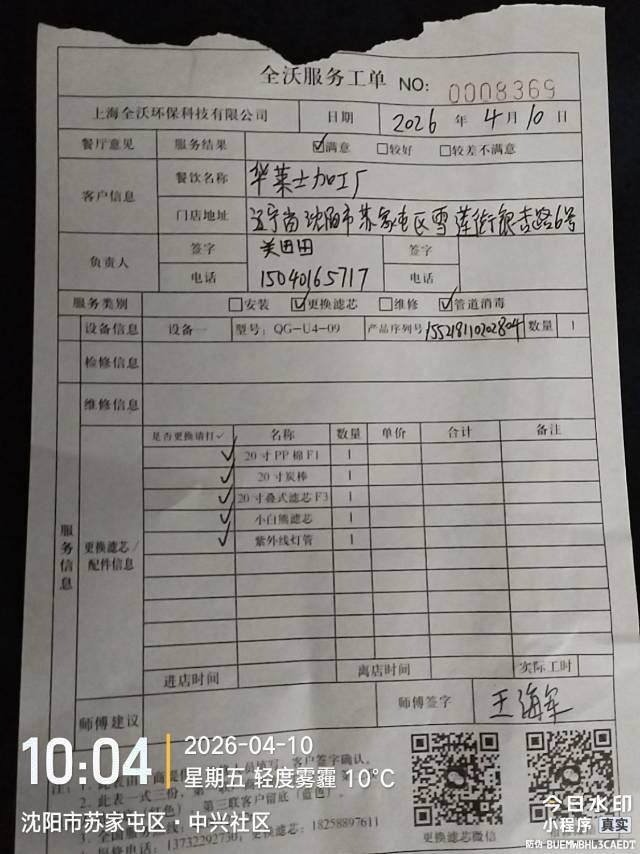 全沃服务工单 NO: 0008369
上海全沃环保科技有限公司 日期 2026 年 4 月 10 日
餐厅意见 服务结果 ☑满意 □较好 □较差不满意
客户信息 餐饮名称 华莱士加工厂
门店地址 辽宁省沈阳市苏家屯区雪莲街银杏路6号
负责人 签字 关田田 签字
电话 15040165717 电话
服务类别 □安装 ☑更换滤芯 □维修 ☑管道消毒
设备信息 设备一 型号: QG-U4-09 产品序列号 155218110202804 数量 1
检修信息
维修信息
服务信息
更换滤芯/配件信息
是否更换请打✓ 名称 数量 单价 合计 备注
✓ 20寸PP棉F1 1
✓ 20寸炭棒 1
✓ 20寸叠式滤芯F3 1
✓ 小白熊滤芯 1
✓ 紫外线灯管 1
进店时间 离店时间 实际工时
师傅建议 师傅签字 王海军
客户签字确认。
2. 此表一式三份,
第三联客户留底(蓝色)。
13732292730, 更换滤芯: 18258897611
更换滤芯微信
10:04 2026-04-10
星期五 轻度雾霾 10°C
沈阳市苏家屯区·中兴社区
今日水印
小程序 真实
防伪 BUEMWBHL3CAEDI